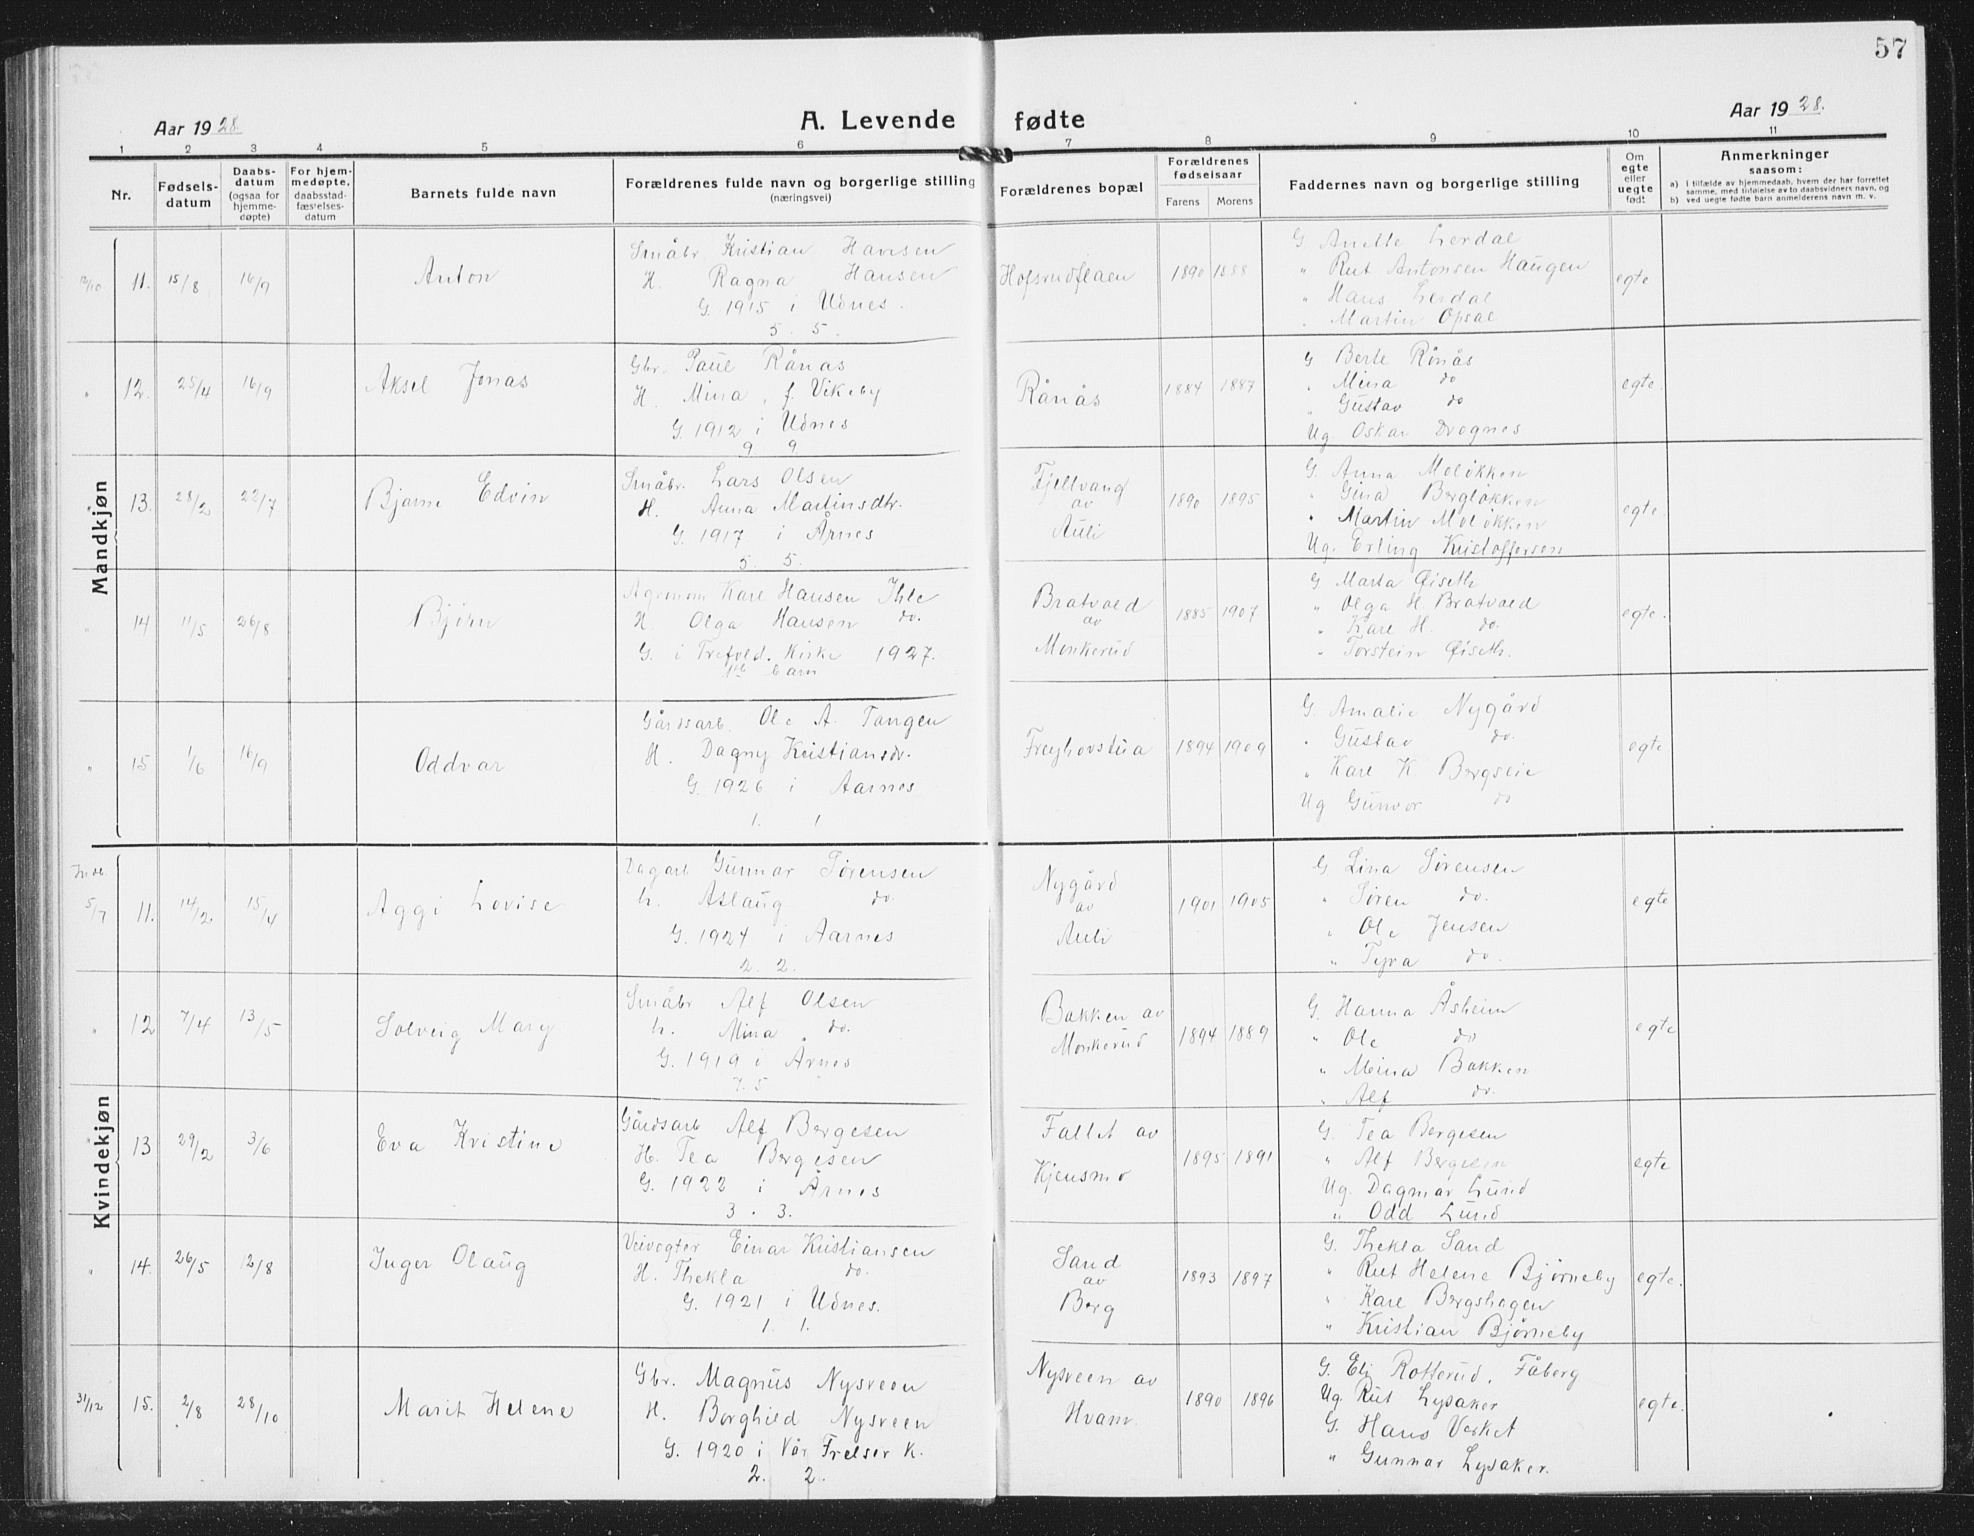 57
Aar 1928.
A. Levende fødte
Aar 1928.
1 2 3 4 5 6 7 8 9 10 11
Nr.
Fødsels-
datum
Daabs-
datum
(ogsaa for
hjemme-
døpte)
For hjem-
medøpte,
daabsstad-
fæstelses-
datum
Barnets fulde navn
Forældrenes fulde navn og borgerlige stilling
(næringsvei)
Forældrenes bopæl
Forældrenes
fødselsaar
Farens Morens
Faddernes navn og borgerlige stilling
Om
egte
eller
uegte
født
Anmerkninger
saasom:
a) I tilfælde av hjemmedaab, hvem der har forrettet
samme, med tilføielse av to daabsvidners navn, og
b) ved uegte fødte barn anmelderens navn m. v.
Mandkjøn
12/10 11. 15/8 16/9 Anton
Småbr. Kristian Hansen
H. Ragna Hansen
G. 1915 i Udnes.
5. 5.
Hofsrudflaen 1890 1888
G. Anette Lerdal
" Rut Antonsen Haugen
" Hans Lerdal
" Martin Opsal
egte
" 12. 25/4 16/9 Aksel Jonas
Gbr. Paul Rånås
H. Mina, f. Vikeby
G. 1912 i Udnes
9 9
Rånås 1884 1887
G Berte Rånås
" Mina do
" Gustav do
Ug. Oskar Drognes
egte.
" 13. 28/2 22/7 Bjarne Edvin
Småbr. Lars Olsen
H. Anna Martinsdtr.
G. 1917 i Årnes
5. 5.
Fjellvang
av
Auli
1890 1895
G Anna Moløkken
" Gina Bergløkken
" Martin Moløkken
Ug. Erling Kristoffersen
egte.
" 14 11/5 26/8 Bjørn
Agronom Karl Hansen Ihle
H. Olga Hansen do.
G. i Trefold. Kirke 1927.
1ste barn
Bratvold
av
Monkerud
1885 1907
G Marta Øiseth
" Olga H Bratvold
" Karl H. do.
" Torstein Øiseth.
egte.
" 15 1/6 16/9 Oddvar
Gårdsarb. Ole A. Tangen
H. Dagny Kristiansdr.
G. 1926 i Aarnes
1. 1
Freyhovstua 1894 1909
G. Amalie Nygård
" Gustav do.
" Karl K Bergslie
Ug Gunvor do
egte
Kvindekjøn
5/7 11. 14/2 15/4 Aggi Lovise
Dagarb Gunnar Sørensen
h. Aslaug do.
G. 1924 i Aarnes
2. 2.
Nygård
av
Auli
1901 1905
G Lina Sørensen
" Søren do.
" Ole Jensen
" Tyra do.
egte
" 12 7/4 13/5 Solveig Mary
Småbr Alf Olsen
h. Mina do.
G. 1919 i Årnes
7. 5
Bakken av
Monkerud
1894 1889
G. Hanna Åsheim
" Ole do
" Mina Bakken
" Alf do.
egte
13 29/2 3/6 Eva Kristine
Gårdsarb Alf Bergesen
H. Tea Bergesen
G. 1922 i Årnes
3. 3.
Fallet av
Kjensmo
1895 1891
G. Tea Bergesen
" Alf Bergesen
Ug. Dagmar Lund
" Odd Lund
egte
" 14. 26/5 12/8 Inger Olaug
Veivogter Einar Kristiansen
H. Thekla do.
G. 1921 i Udnes.
1. 1.
Sand
av
Berg
1893 1897
G. Thekla Sand
" Rut Helene Bjørneby
" Karl Bergshagen
" Kristian Bjørneby
egte.
31/12 15. 2/8 28/10 Marit Helene
Gbr. Magnus Nysveen
H. Borghild Nysveen
G. 1920 i Vår Frelser K.
2. 2.
Nysveen av
Hvam.
1890 1896
G. Eli Rotterud, Fåberg
Ug Rut Lysaker
G. Hans Verket
" Gunnar Lysaker.
egte.